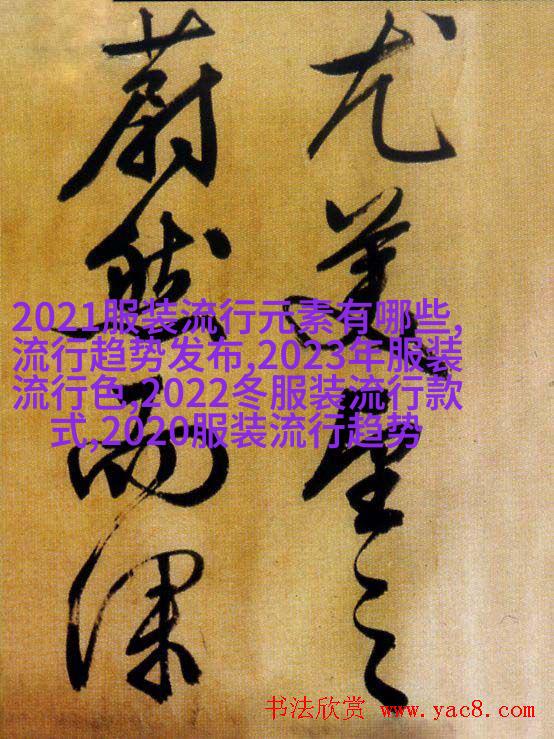 尤美望之
蔚然而深
2021服装流行元素有哪些,
流行趋势发布,2023年服装
流行色,2022冬服装流行款
式,2020服装流行趋势
书法欣赏 www.yac8.com